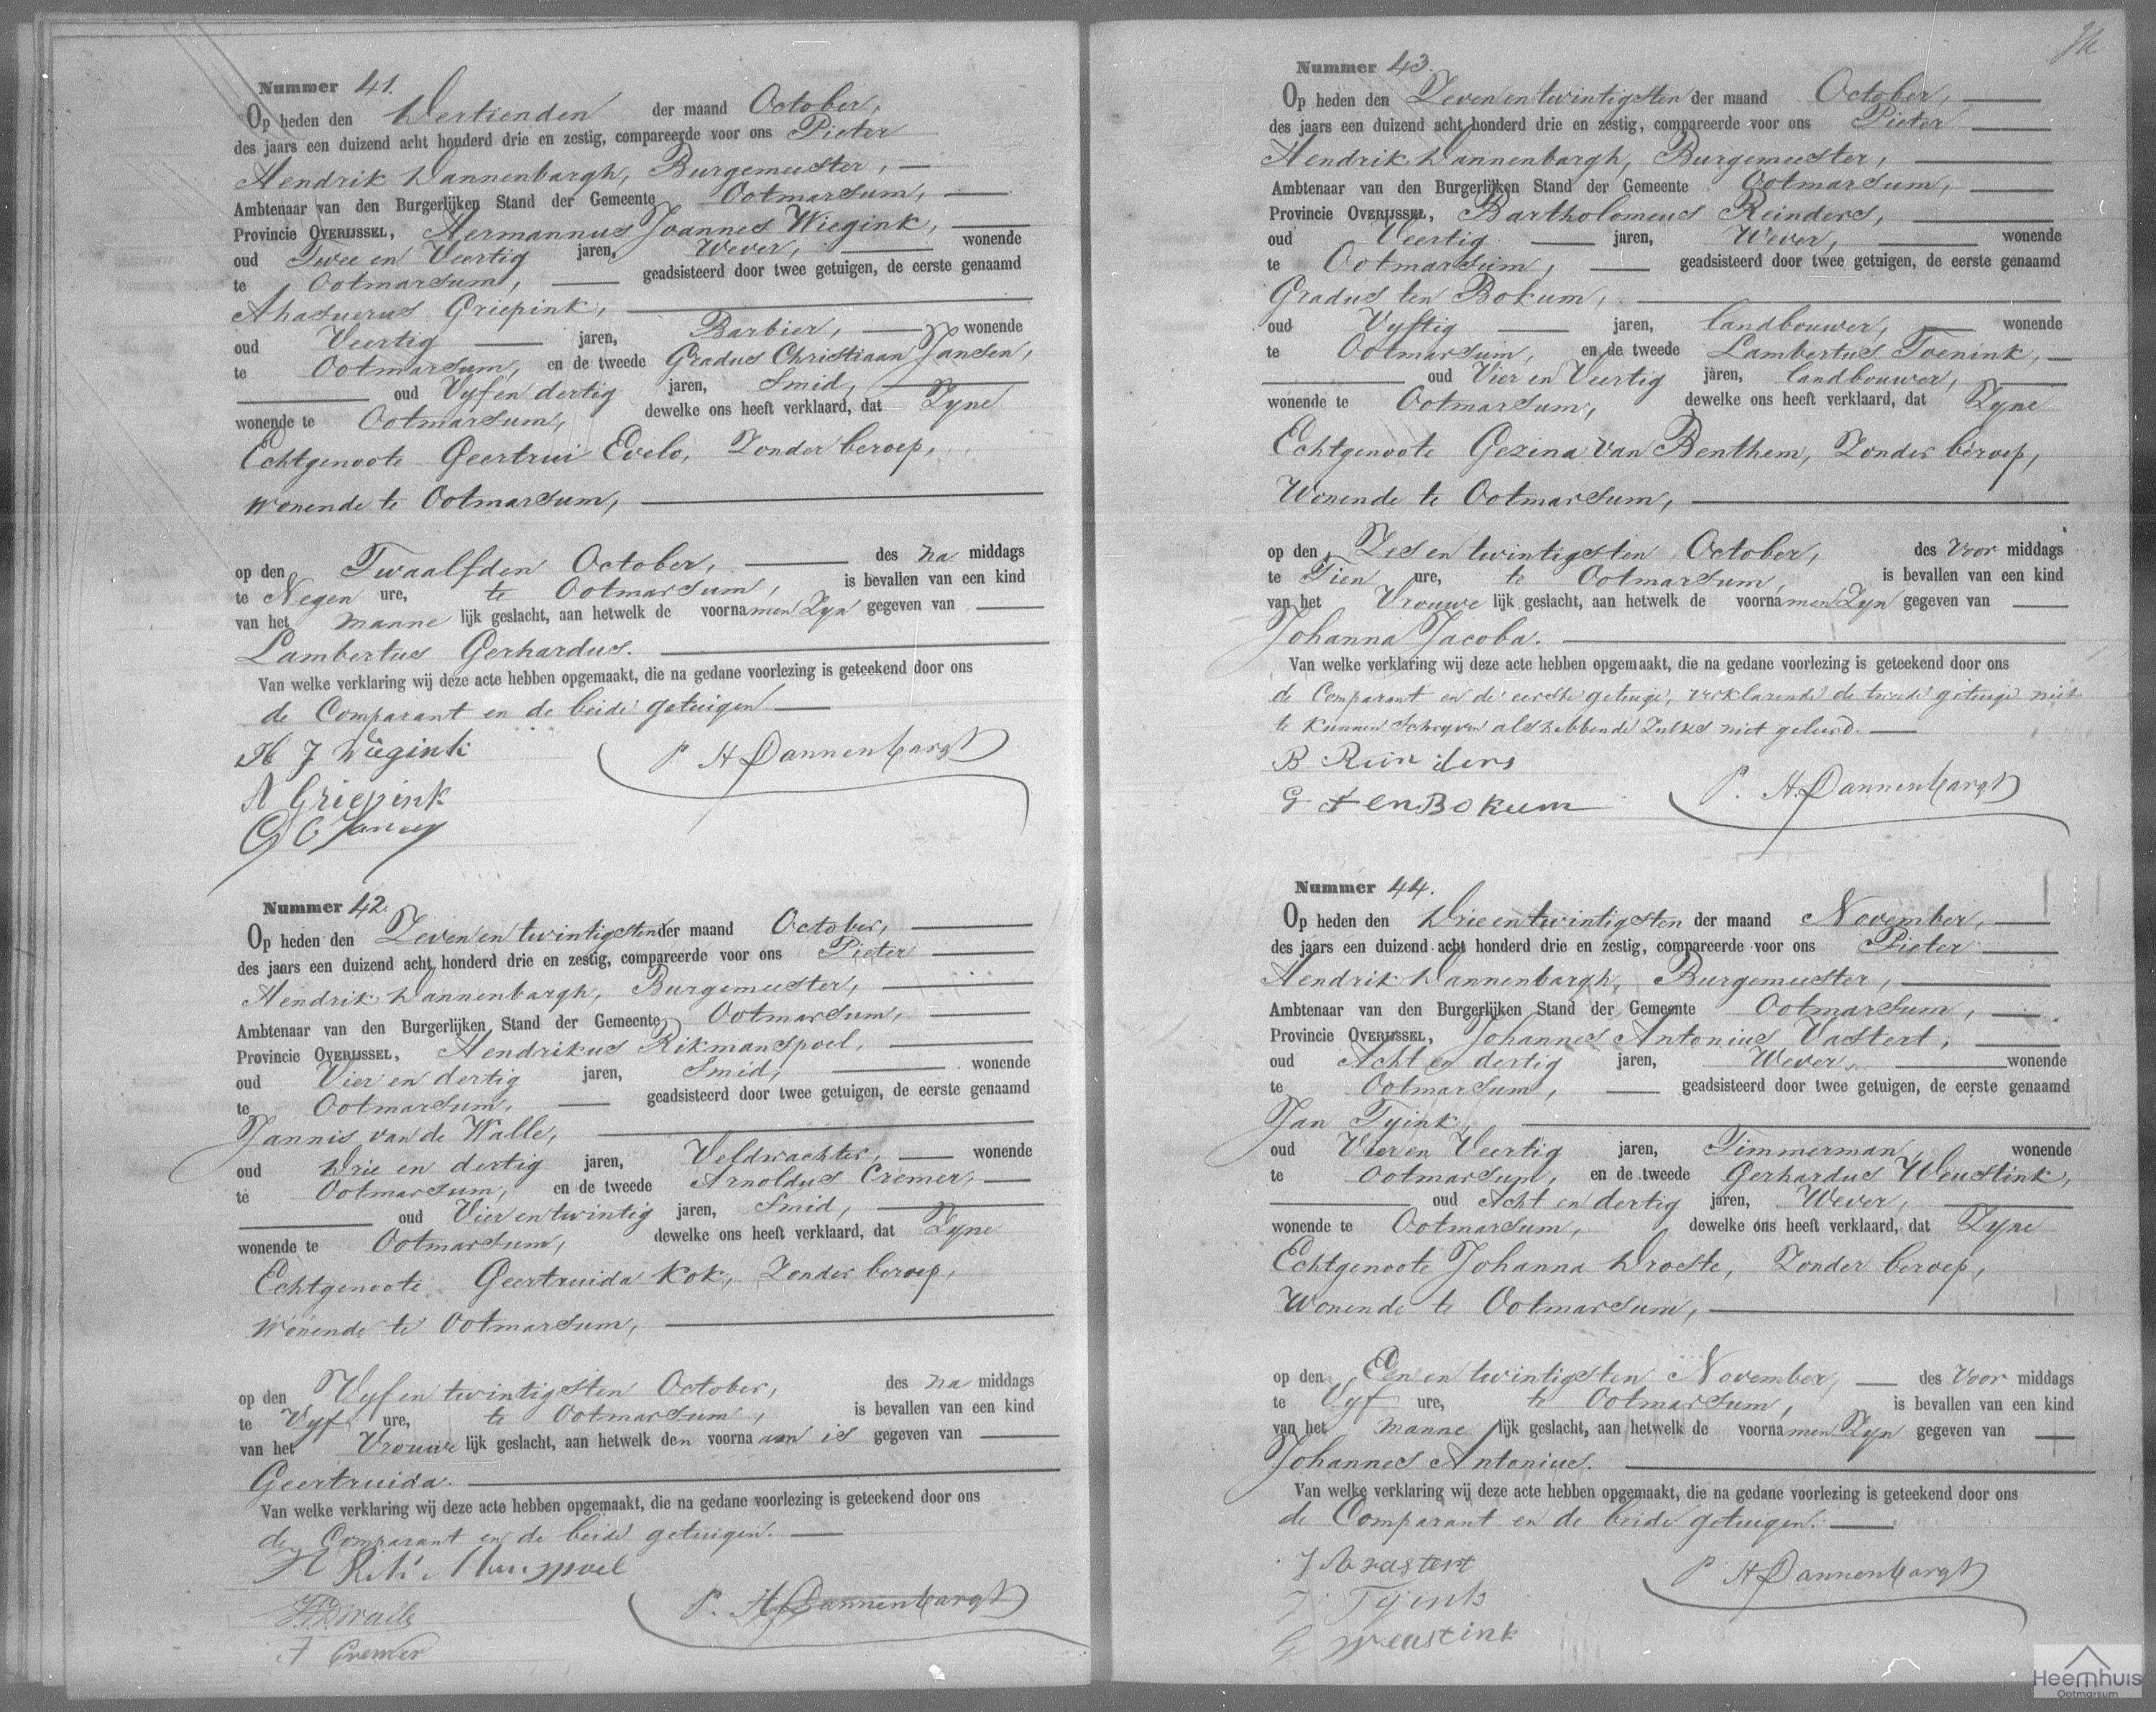 Nummer 41.
Op heden den Dertienden der maand October,
des jaars een duizend acht honderd drie en zestig, compareerde voor ons Pieter
Hendrik Dannenbargh, Burgemeester,
Ambtenaar van den Burgerlijken Stand der Gemeente Ootmarsum,
Provincie OVERIJSSEL, Hermannus Joannes Wiegink,
oud Twee en Veertig jaren, Wever, wonende
te Ootmarsum, geadsisteerd door twee getuigen, de eerste genaamd
Ahasuerus Griepink,
oud Veertig jaren, Barbier, wonende
te Ootmarsum, en de tweede Gradus Christiaan Jansen,
oud Vyf en dertig jaren, Smid,
wonende te Ootmarsum, dewelke ons heeft verklaard, dat Zyne
Echtgenoote Geertrui Evelo, Zonder beroep,
Wonende te Ootmarsum,
op den Twaalfden October, des na middags
te Negen ure, te Ootmarsum, is bevallen van een kind
van het manne lijk geslacht, aan hetwelk de voornamen Zyn gegeven van
Lambertus Gerhardus.
Van welke verklaring wij deze acte hebben opgemaakt, die na gedane voorlezing is geteekend door ons
de Comparant en de beide getuigen
H J Wiegink P H Dannenbargh
A Griepink
G C Jansen
Nummer 42.
Op heden den Zeven en twintigsten der maand October,
des jaars een duizend acht honderd drie en zestig, compareerde voor ons Pieter
Hendrik Dannenbargh, Burgemeester,
Ambtenaar van den Burgerlijken Stand der Gemeente Ootmarsum,
Provincie OVERIJSSEL, Hendrikus Rikmanspoel,
oud Vier en dertig jaren, Smid, wonende
te Ootmarsum, geadsisteerd door twee getuigen, de eerste genaamd
Jannis van de Walle,
oud Drie en dertig jaren, Veldwachter, wonende
te Ootmarsum, en de tweede Arnoldus Cremer,
oud Vier en twintig jaren, Smid,
wonende te Ootmarsum, dewelke ons heeft verklaard, dat Zyne
Echtgenoote Geertruida Kok, Zonder beroep,
Wonende te Ootmarsum,
op den Vyf en twintigsten October, des na middags
te Vyf ure, te Ootmarsum, is bevallen van een kind
van het Vrouwe lijk geslacht, aan hetwelk den voorna am is gegeven van
Geertruida.
Van welke verklaring wij deze acte hebben opgemaakt, die na gedane voorlezing is geteekend door ons
de Comparant en de beide getuigen.
H Rikmanspoel
P. H Dannenbargh
Cremer
Nummer 43.
Op heden den Zeven en twintigsten der maand October,
des jaars een duizend acht honderd drie en zestig, compareerde voor ons Pieter
Hendrik Dannenbargh, Burgemeester,
Ambtenaar van den Burgerlijken Stand der Gemeente Ootmarsum,
Provincie OVERIJSSEL, Bartholomeus Reinders,
oud Veertig jaren, Wever, wonende
te Ootmarsum, geadsisteerd door twee getuigen, de eerste genaamd
Gradus ten Bokum,
oud Vyftig jaren, landbouwer, wonende
te Ootmarsum, en de tweede Lambertus Toenink,
oud Vier en Veertig jaren, landbouwer,
wonende te Ootmarsum, dewelke ons heeft verklaard, dat Zyne
Echtgenoote Gezina van Benthem, Zonder beroep,
Wonende te Ootmarsum,
op den Zes en twintigsten October, des Voor middags
te Tien ure, te Ootmarsum, is bevallen van een kind
van het Vrouwe lijk geslacht, aan hetwelk de voornamen Zyn gegeven van
Johanna Jacoba.
Van welke verklaring wij deze acte hebben opgemaakt, die na gedane voorlezing is geteekend door ons
de Comparant en de eerste getuige, verklarende de tweede getuige niet
te kunnen Schryven als hebbende zulks niet geleerd.
B Reinders
G ten Bokum P. H. Dannenbargh
Nummer 44.
Op heden den Drie en twintigsten der maand November,
des jaars een duizend acht honderd drie en zestig, compareerde voor ons Pieter
Hendrik Dannenbargh, Burgemeester,
Ambtenaar van den Burgerlijken Stand der Gemeente Ootmarsum,
Provincie OVERIJSSEL, Johannes Antonius Vastert,
oud Acht en dertig jaren, Wever, wonende
te Ootmarsum, geadsisteerd door twee getuigen, de eerste genaamd
Jan Tyink,
oud Vier en Veertig jaren, Timmerman, wonende
te Ootmarsum, en de tweede Gerhardus Weustink,
oud Acht en dertig jaren, Wever,
wonende te Ootmarsum, dewelke ons heeft verklaard, dat Zyne
Echtgenoote Johanna Droste, Zonder beroep,
Wonende te Ootmarsum,
op den Een en twintigsten November, des Voor middags
te Vyf ure, te Ootmarsum, is bevallen van een kind
van het manne lijk geslacht, aan hetwelk de voornamen Zyn gegeven van
Johannes Antonius.
Van welke verklaring wij deze acte hebben opgemaakt, die na gedane voorlezing is geteekend door ons
de Comparant en de beide getuigen.
J A Vastert P H Dannenbargh
J. Tyink
G Weustink
Heemhuis
Ootmarsum